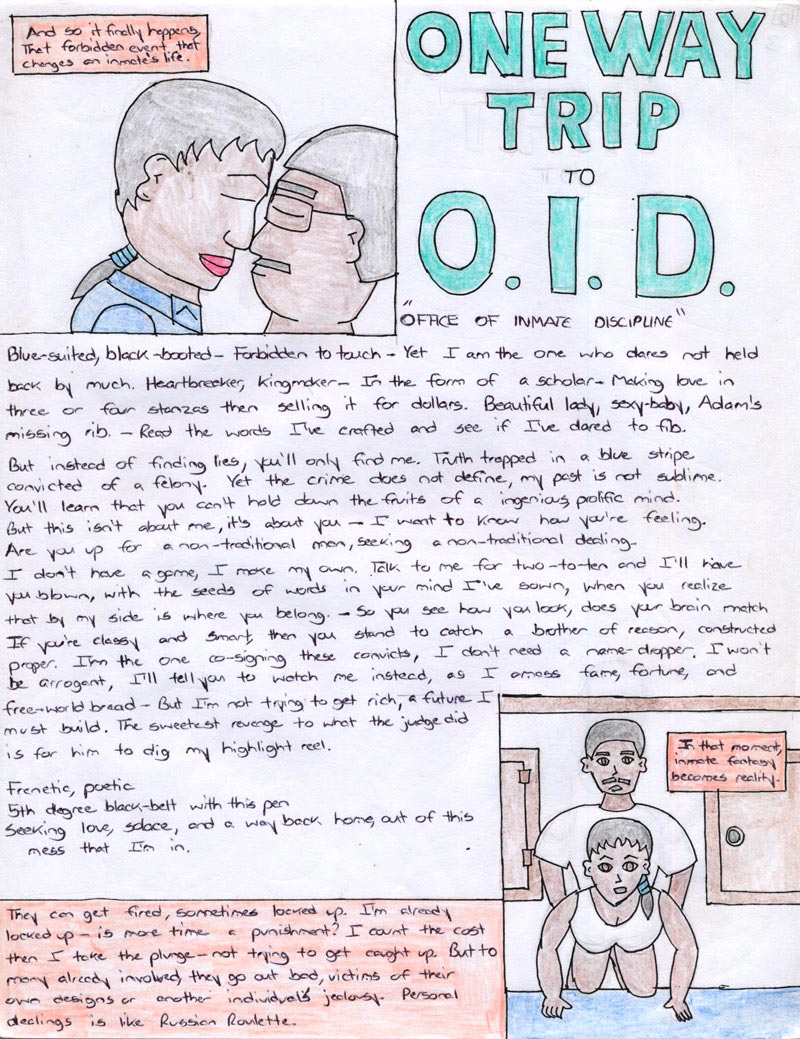 And so it finally happens,
That forbidden event that
changes an inmate's life.
ONE WAY
TRIP
TO
O.I.D.
"OFFICE OF INMATE DISCIPLINE"
Blue-suited, black-booted - Forbidden to touch - Yet I am the one who dares not held
back by much. Heartbreaker, kingmaker - In the form of a scholar - Making love in
three or four stanzas then selling it for dollars. Beautiful lady, sexy-baby, Adam's
missing rib. - Read the words I've crafted and see if I've dared to fib.
But instead of finding lies, you'll only find me. Truth trapped in a blue stripe
convicted of a felony. Yet the crime does not define, my past is not sublime.
You'll learn that you can't hold down the fruits of a ingenious, prolific mind.
But this isn't about me, it's about you - I want to know how you're feeling.
Are you up for a non-traditional man, seeking a non-traditional dealing.
I don't have a game, I make my own. Talk to me for two-to-ten and I'll have
you blown, with the seeds of words in your mind I've sown, when you realize
that by my side is where you belong. - So you see how you look, does your brain match
If you're classy and smart, then you stand to catch a brother of reason, constructed
proper. I'm the one co-signing these convicts, I don't need a name-dropper. I won't
be arrogant, I'll tell you to watch me instead, as I amass fame, fortune, and
free-world bread - But I'm not trying to get rich, a future I
must build. The sweetest revenge to what the judge did
is for him to dig my highlight reel.
Frenetic, poetic
5th degree black-belt with this pen
Seeking love, solace, and a way back home, out of this
mess that I'm in.
In that moment,
inmate fantasy
becomes reality.
They can get fired, sometimes locked up. I'm already
locked up - is more time a punishment? I count the cost
then I take the plunge - not trying to get caught up. But to
many already involved, they go out bad, victims of their
own designs or another individual's jealousy. Personal
dealings is like Russian Roulette.